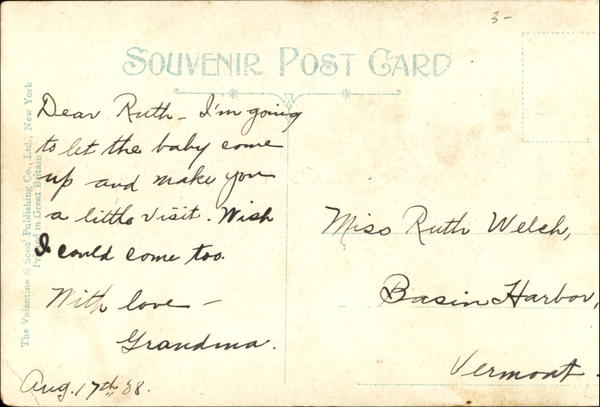 3-
SOUVENIR POST CARD
Dear Ruth - I'm going
to let the baby come
up and make you
a little visit. Wish
I could come too.
With love -
Grandma.
Aug. 17th, 38.
Miss Ruth Welch,
Basin Harbor,
Vermont.
The Valentine & Sons' Publishing Co., Ltd., New York
Printed in Great Britain